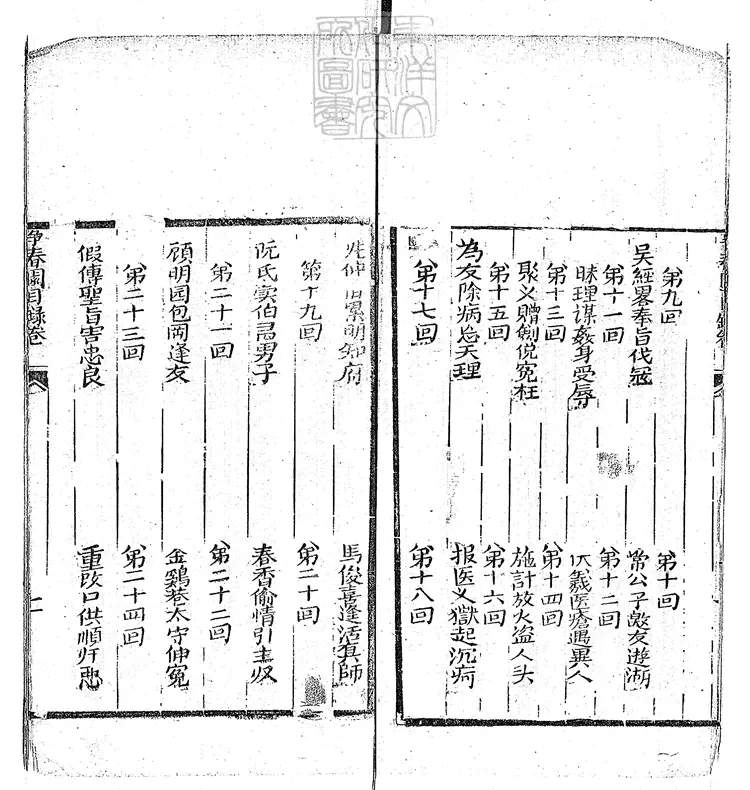 第九回
第十回
吴經畧奉旨伐冦
常公子邀友遊湖
第十一回
第十二回
昧理謀姦身受辱
仗義医瘡遇異人
第十三回
第十四回
聚义贈劍悦冤枉
施計放火盗人头
第十五回
第十六回
為友除病忘天理
报医义獄起沉疴
第十七回
第十八回
明知府
馬俊喜逢活真師
第十九回
第二十回
阮氏賣伯昌男子
春香偷情引主奴
第二十一回
第二十二回
顧明园包岡逢友
金鷄巷太守伸冤
第二十三回
第二十四回
假傳聖旨害忠良
重改口供順奸忠
争春園目錄卷一
二
圖書